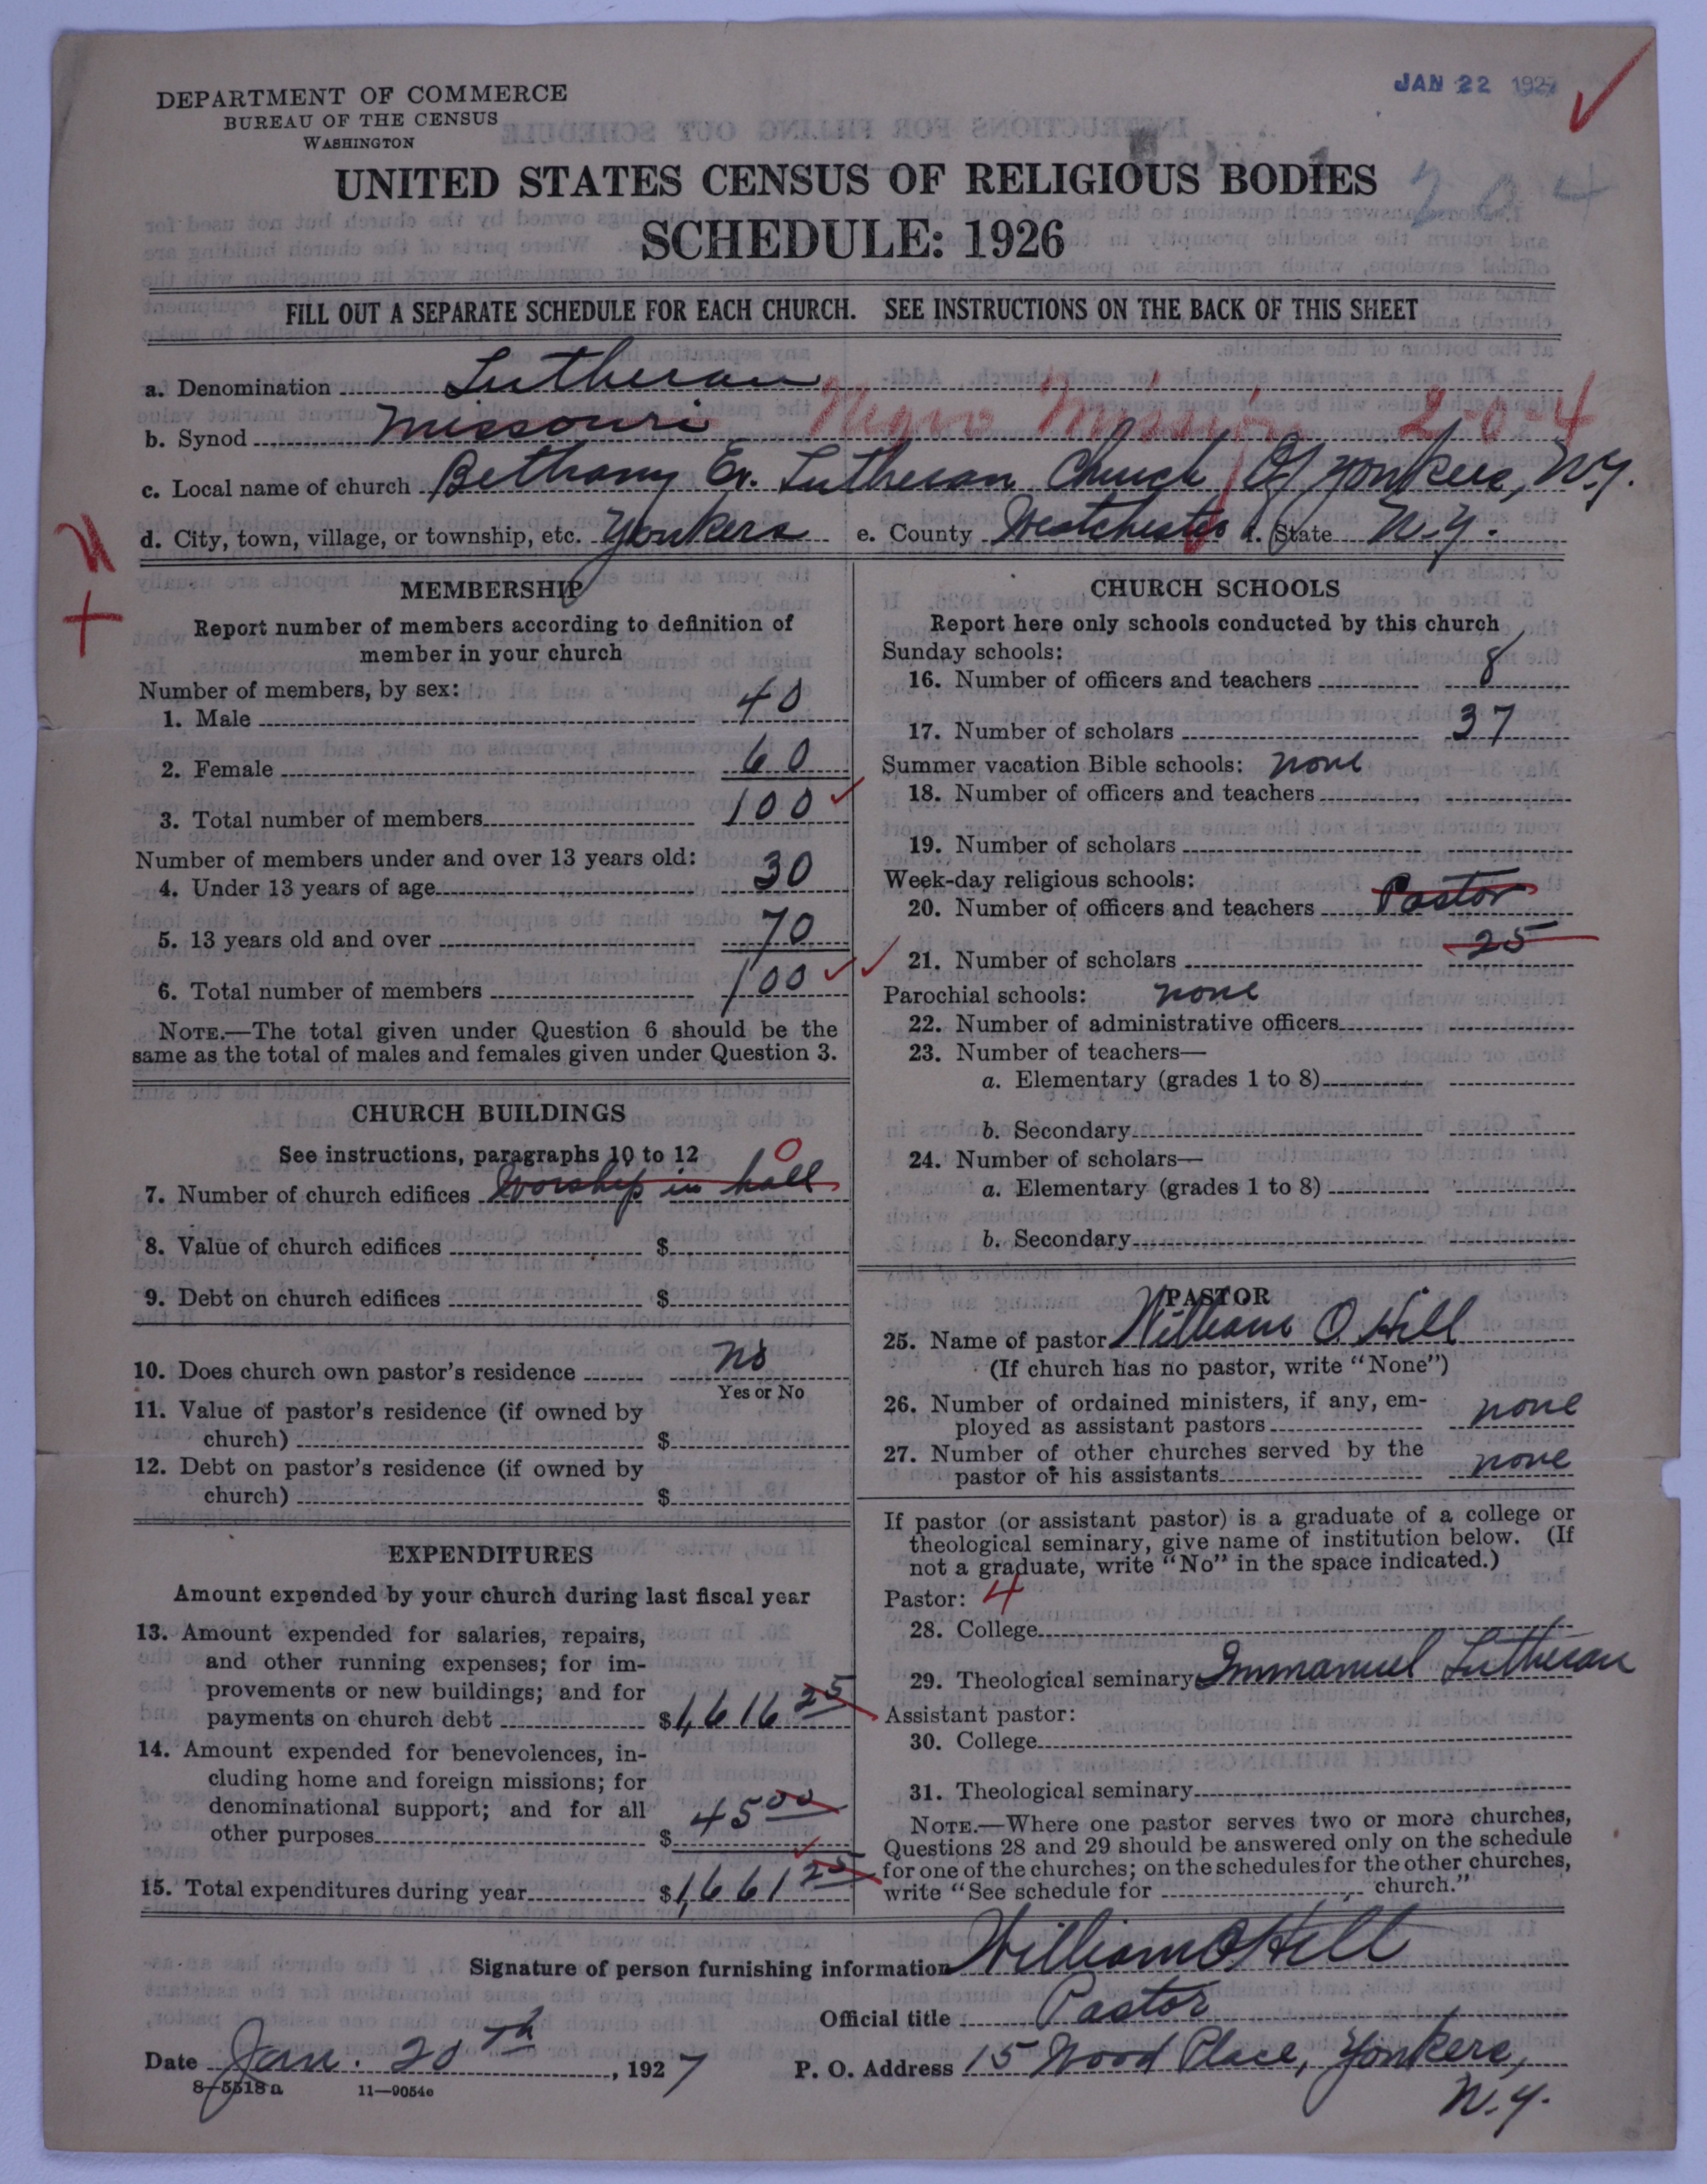 JAN 22 1927
DEPARTMENT OF COMMERCE
BUREAU OF THE CENSUS
WASHINGTON
UNITED STATES CENSUS OF RELIGIOUS BODIES
204
SCHEDULE: 1926
FILL OUT A SEPARATE SCHEDULE FOR EACH CHURCH. SEE INSTRUCTIONS ON THE BACK OF THIS SHEET
a. Denomination Lutheran
b. Synod Missouri Negro Mission 2-0-4
c. Local name of church Bethany Ev. Lutheran Church Of Yonkers, N.Y.
d. City, town, village, or township, etc. Yonkers e. County Westchester f. State N.Y.
MEMBERSHIP
Report number of members according to definition of
member in your church
Number of members, by sex:
1. Male 40
2. Female 60
3. Total number of members 100
Number of members under and over 13 years old:
4. Under 13 years of age 30
5. 13 years old and over 70
6. Total number of members 100
NOTE.—The total given under Question 6 should be the
same as the total of males and females given under Question 3.
CHURCH BUILDINGS
See instructions, paragraphs 10 to 12 0
7. Number of church edifices Worship in hall
8. Value of church edifices $
9. Debt on church edifices $
10. Does church own pastor's residence no
Yes or No
11. Value of pastor's residence (if owned by
church) $
12. Debt on pastor's residence (if owned by
church) $
EXPENDITURES
Amount expended by your church during last fiscal year
13. Amount expended for salaries, repairs,
and other running expenses; for im-
provements or new buildings; and for
payments on church debt $1,616 25
14. Amount expended for benevolences, in-
cluding home and foreign missions; for
denominational support; and for all
other purposes $ 45 00
15. Total expenditures during year $1,661 25
CHURCH SCHOOLS
Report here only schools conducted by this church
Sunday schools:
16. Number of officers and teachers 8
17. Number of scholars 37
Summer vacation Bible schools: none
18. Number of officers and teachers
19. Number of scholars
Week-day religious schools:
20. Number of officers and teachers Pastor
21. Number of scholars 25
Parochial schools: none
22. Number of administrative officers
23. Number of teachers—
a. Elementary (grades 1 to 8)
b. Secondary
24. Number of scholars—
a. Elementary (grades 1 to 8)
b. Secondary
PASTOR
25. Name of pastor William O. Hill
(If church has no pastor, write "None")
26. Number of ordained ministers, if any, em-
ployed as assistant pastors none
27. Number of other churches served by the
pastor or his assistants none
If pastor (or assistant pastor) is a graduate of a college or
theological seminary, give name of institution below. (If
not a graduate, write "No" in the space indicated.)
Pastor: 4
28. College
29. Theological seminary Immanuel Lutheran
Assistant pastor:
30. College
31. Theological seminary
NOTE.—Where one pastor serves two or more churches,
Questions 28 and 29 should be answered only on the schedule
for one of the churches; on the schedules for the other churches,
write "See schedule for church."
Signature of person furnishing information William O Hill
Official title Pastor
Date Jan. 20th, 1927 P. O. Address 15 Wood Place, Yonkers,
N.Y.
8-5518a 11—9054e